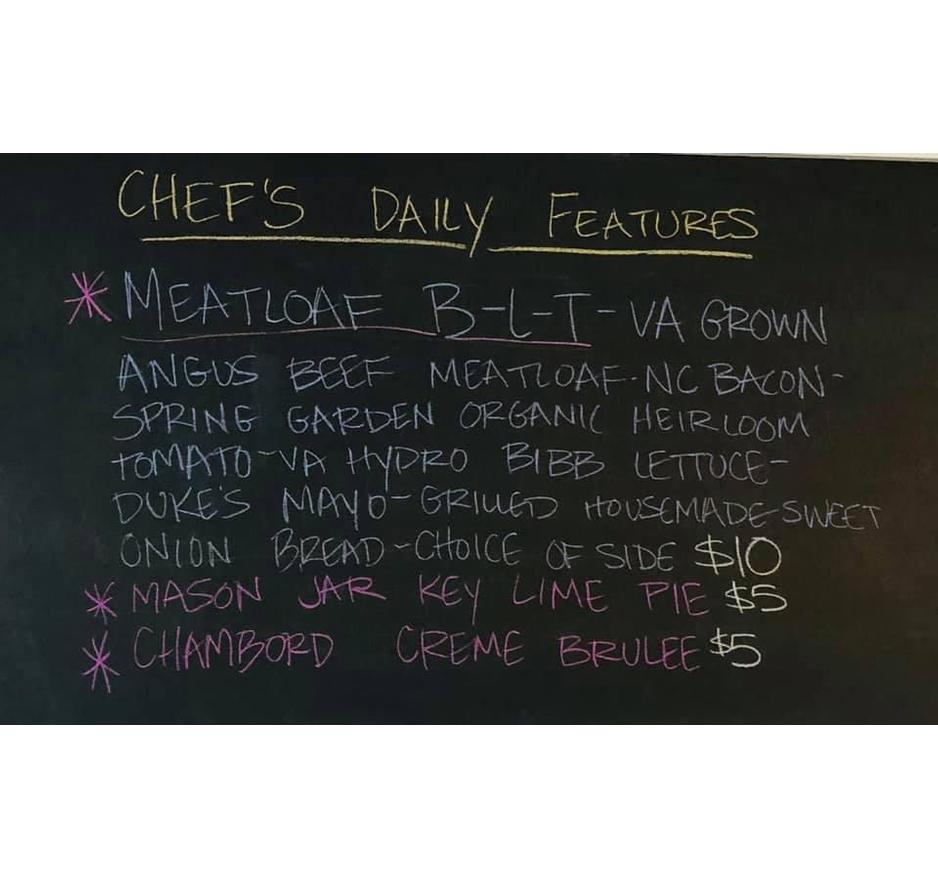 CHEF'S DAILY FEATURES
* MEATLOAF B-L-T - VA GROWN
ANGUS BEEF MEATLOAF - NC BACON -
SPRING GARDEN ORGANIC HEIRLOOM
TOMATO - VA HYDRO BIBB LETTUCE -
DUKE'S MAYO - GRILLED HOUSEMADE SWEET
ONION BREAD - CHOICE OF SIDE $10
* MASON JAR KEY LIME PIE $5
* CHAMBORD CREME BRULEE $5